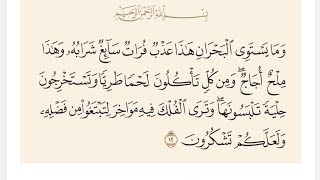 بِسْمِ ٱللَّهِ ٱلرَّحْمَٰنِ ٱلرَّحِيمِ
وَمَا يَسْتَوِى ٱلْبَحْرَانِ هَٰذَا عَذْبٌ فُرَاتٌ سَآئِغٌ شَرَابُهُۥ وَهَٰذَا
مِلْحٌ أُجَاجٌ ۖ وَمِن كُلٍّ تَأْكُلُونَ لَحْمًا طَرِيًّا وَتَسْتَخْرِجُونَ
حِلْيَةً تَلْبَسُونَهَا ۖ وَتَرَى ٱلْفُلْكَ فِيهِ مَوَاخِرَ لِتَبْتَغُوا۟ مِن فَضْلِهِۦ
وَلَعَلَّكُمْ تَشْكُرُونَ ١٢